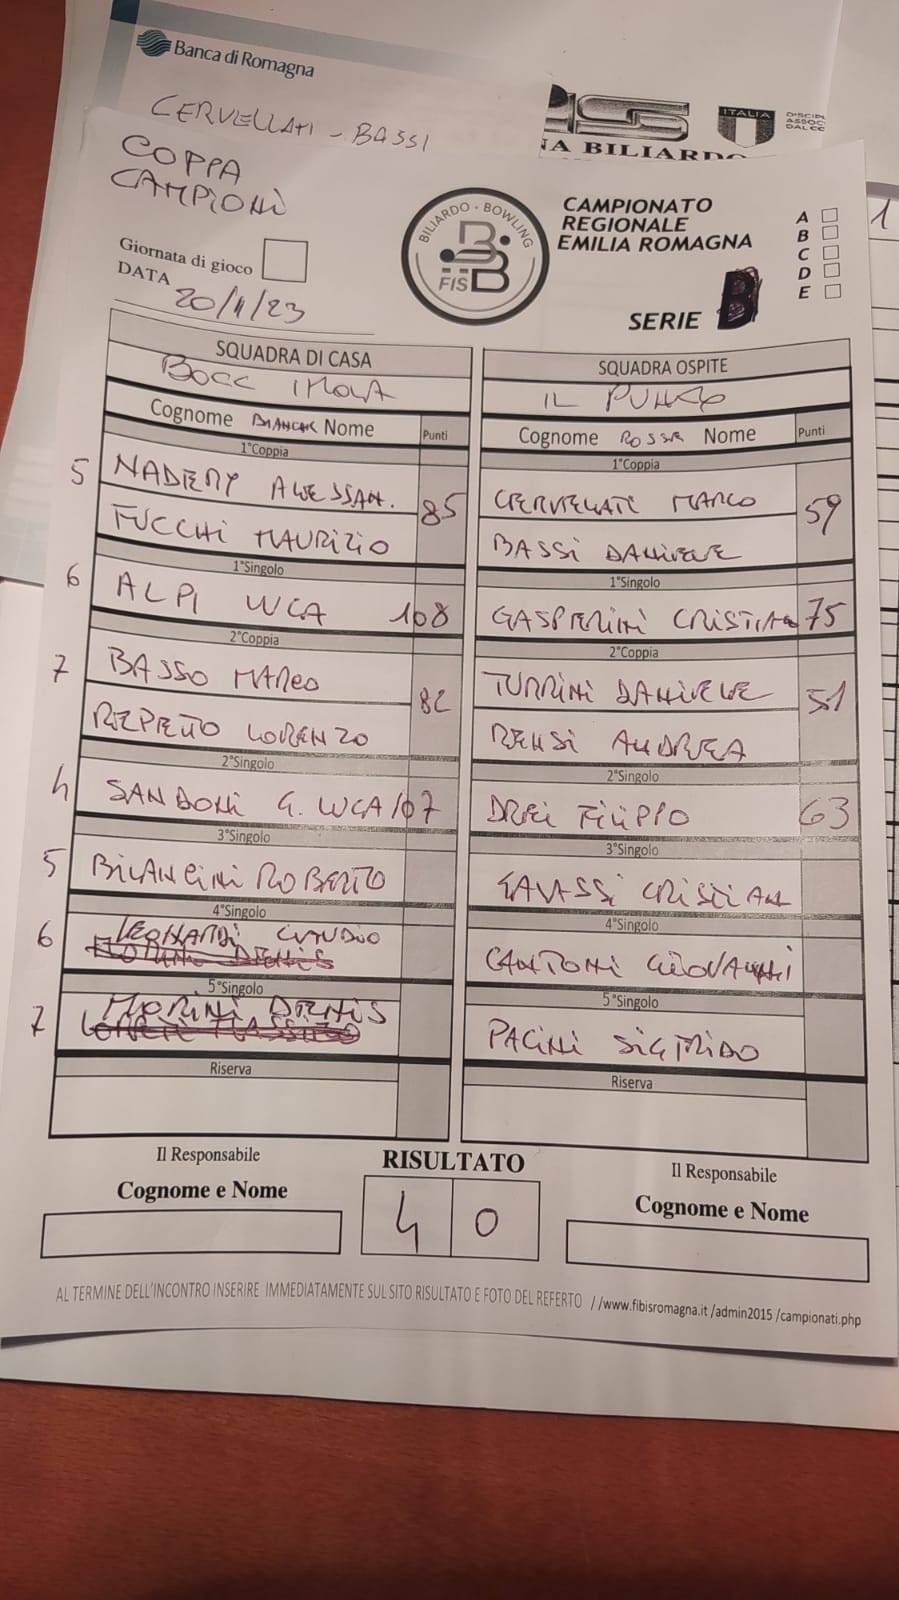 Banca di Romagna
CERVELLATI - BASSI
ITALIA
NA BILIARDO
COPPA
CAMPIONI
BILIARDO · BOWLING
FISBB
CAMPIONATO
REGIONALE
EMILIA ROMAGNA
A
B
C
D
E
1
Giornata di gioco
DATA 20/11/23
SERIE B
SQUADRA DI CASA
BOCC IMOLA
Cognome BIANCHE Nome Punti
1°Coppia
5 NADERY ALESSAN. 85
FUCCHI MAURIZIO
1°Singolo
6 ALPI LUCA 108
2°Coppia
7 BASSO MARCO 82
REPETTO LORENZO
2°Singolo
4 SANDONI G. LUCA 107
3°Singolo
5 BILANCINI ROBERTO
4°Singolo
6 LEONARDI CLAUDIO
5°Singolo
7 MORINI DENIS
Riserva
SQUADRA OSPITE
IL PUNTO
Cognome ROSSE Nome Punti
1°Coppia
CERVELLATI MARCO 59
BASSI DANIELE
1°Singolo
GASPERINI CRISTIAN 75
2°Coppia
TURRINI DANIELE 51
RENSI ANDREA
2°Singolo
DREI FILIPPO 63
3°Singolo
GAVASSI CRISTIAN
4°Singolo
CANTONI GIOVANNI
5°Singolo
PACINI SIGFRIDO
Riserva
Il Responsabile
Cognome e Nome
RISULTATO
4 0
Il Responsabile
Cognome e Nome
AL TERMINE DELL'INCONTRO INSERIRE IMMEDIATAMENTE SUL SITO RISULTATO E FOTO DEL REFERTO //www.fibisromagna.it /admin2015 /campionati.php